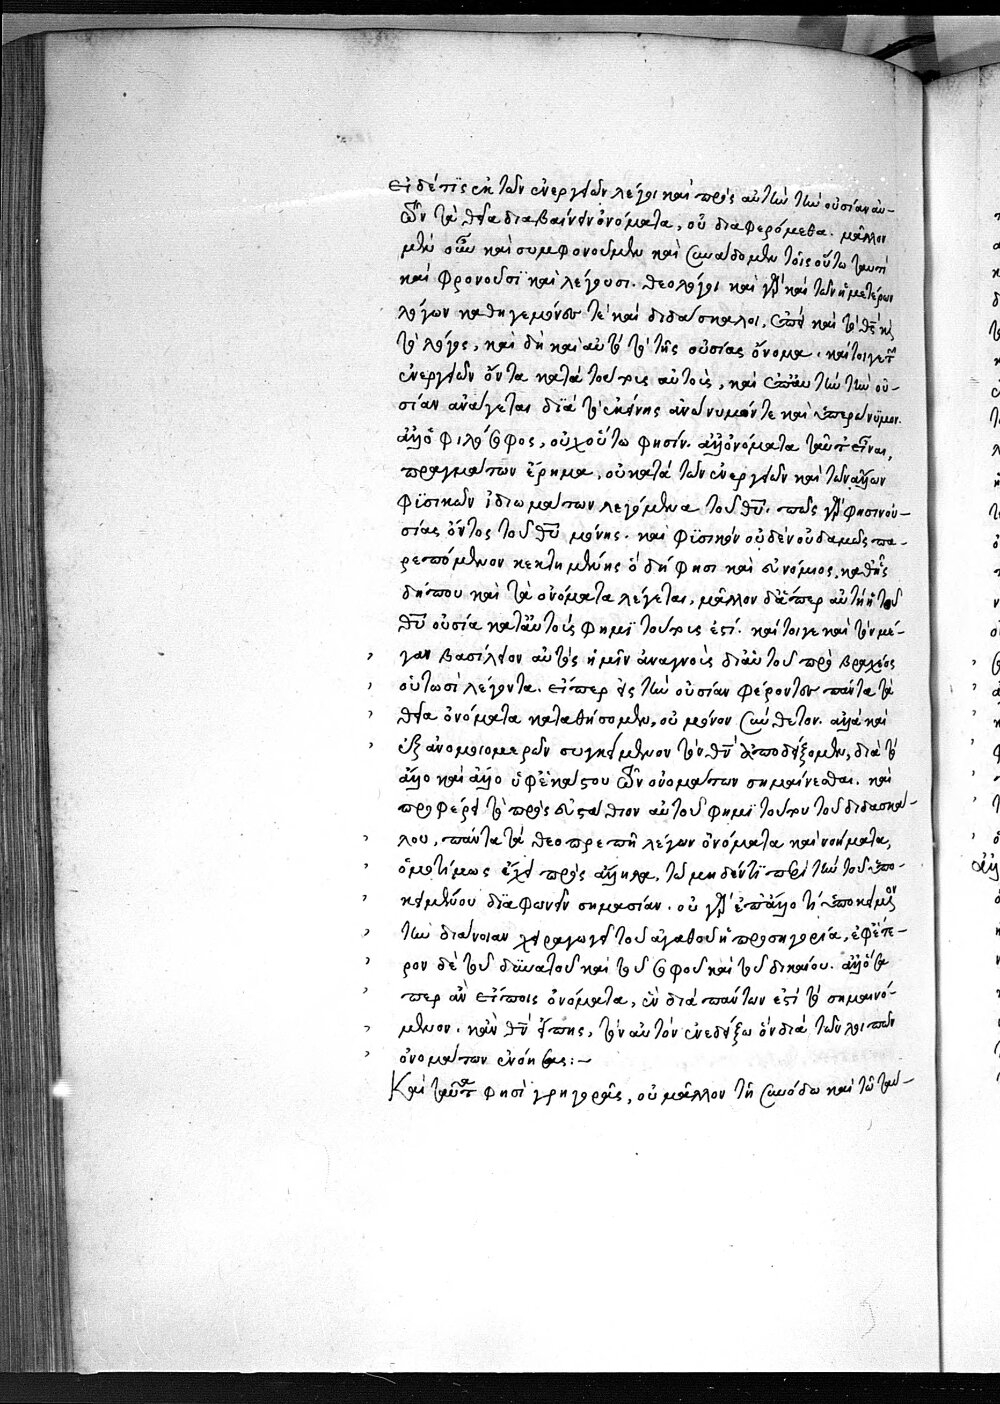 εἰ δέ τις ἐκ τῶν ἐνεργειῶν λέγει καὶ πρὸς αὐτὴν τὴν οὐσίαν αὐ-
τῶν τὰ θεῖα διαβαίνειν ὀνόματα, οὐ διαφερόμεθα. μᾶλλον
μὲν οὖν καὶ συμφονοῦμεν καὶ συνάδομεν τοῖς οὕτω ταυτὶ
καὶ φρονοῦσι καὶ λέγουσι. θεολόγοι καὶ γὰρ καὶ τῶν ἡμετέρων
λόγων καθηγεμόνες τὲ καὶ διδάσκαλοι, ἐπεὶ καὶ τὸ θεὸς
τὸ λόγος, καὶ δὴ καὶ αὐτὸ τὸ τῆς οὐσίας ὄνομα. καίτοιγε τῶν
ἐνεργειῶν ὄντα κατὰ τούτους αὐτοῖς, καὶ ἐπ' αὐτὴν τὴν οὐ-
σίαν ἀνάγεται διὰ τὸ ἐκείνης ἀνώνυμόν τε καὶ ὑπερώνυμον.
ἀλλ' ὁ φιλόσοφος, οὐχ οὕτω φησίν. ἀλλ' ὀνόματα ταῦτ' εἶναι,
πραγμάτων ἔρημα, οὐ κατὰ τῶν ἐνεργειῶν καὶ τῶν ἄλλων
φϊσικῶν ἰδιωμάτων λεγόμενα τοῦ θῦ. πῶς γάρ φησιν οὐ-
σίας ὄντος τοῦ θῦ μόνης. καὶ φϊσικὸν οὐδὲν οὐδαμῶς πα-
ρεπόμενον κεκτημένης ὁ δή φησι καὶ εὐνόμιος, καθ' ἧς
δήπου καὶ τὰ ὀνόματα λέγεται, μᾶλλον δ' ἅπερ αὐτὴ ἡ τοῦ
θῦ οὐσία κατ' αὐτοὺς φημὶ τούτους ἐστί. καίτοιγε καὶ τὸν μέ-
γαν βασίλειον αὐτὸς ἡμῖν ἀναγνοὺς δι' αὑτοῦ πρὸ βραχέος
οὑτωσὶ λέγοντα. εἴπερ εἰς τὴν οὐσίαν φέροντες πάντα τὰ
θεῖα ὀνόματα καταθήσομεν, οὐ μόνον σύνθετον. ἀλλὰ καὶ
ἐξ ἀνομοιομερῶν συγκείμενον τὸν θν ἀποδείξομεν, διὰ τὸ
ἄλλο καὶ ἄλλο ὑφ' ἑκάστου τῶν ὀνομάτων σημαίνεσθαι. καὶ
προφέρει τὸ πρὸς εὐστάθιον αὐτοῦ φημὶ τούτου τοῦ διδασκά-
λου, πάντα τὰ θεοπρεπῆ λέγων ὀνόματα καὶ νοήματα,
ὁμοτίμως ἔχει πρὸς ἄλληλα, τῶ μηδέν τι περὶ τὴν τοῦ ὑπο-
κειμένου διαφωνεῖν σημασίαν. οὐ γὰρ ἐπ' ἄλλο τι ὑποκείμενον
τὴν διάνοιαν χειραγωγεῖ τοῦ ἀγαθοῦ ἡ προσηγορία, ἐφ' ἕτε-
ρον δὲ τοῦ δϋνατοῦ καὶ τοῦ σοφοῦ καὶ τοῦ δικαίου. ἀλλ' ὅσα
περ ἂν εἴποις ὀνόματα, ἓν διὰ πάντων ἐστὶ τὸ σημαινό-
μενον. κἂν θν εἴπης, τὸν αὐτὸν ἐνεδείξω ὃν διὰ τῶν λοιπῶν
ὀνομάτων ἐνόησας:—
Καὶ ταῦτα φησὶ γρηγορᾶς, οὐ μᾶλλον τῆ συνόδω καὶ τῶ ταυ-